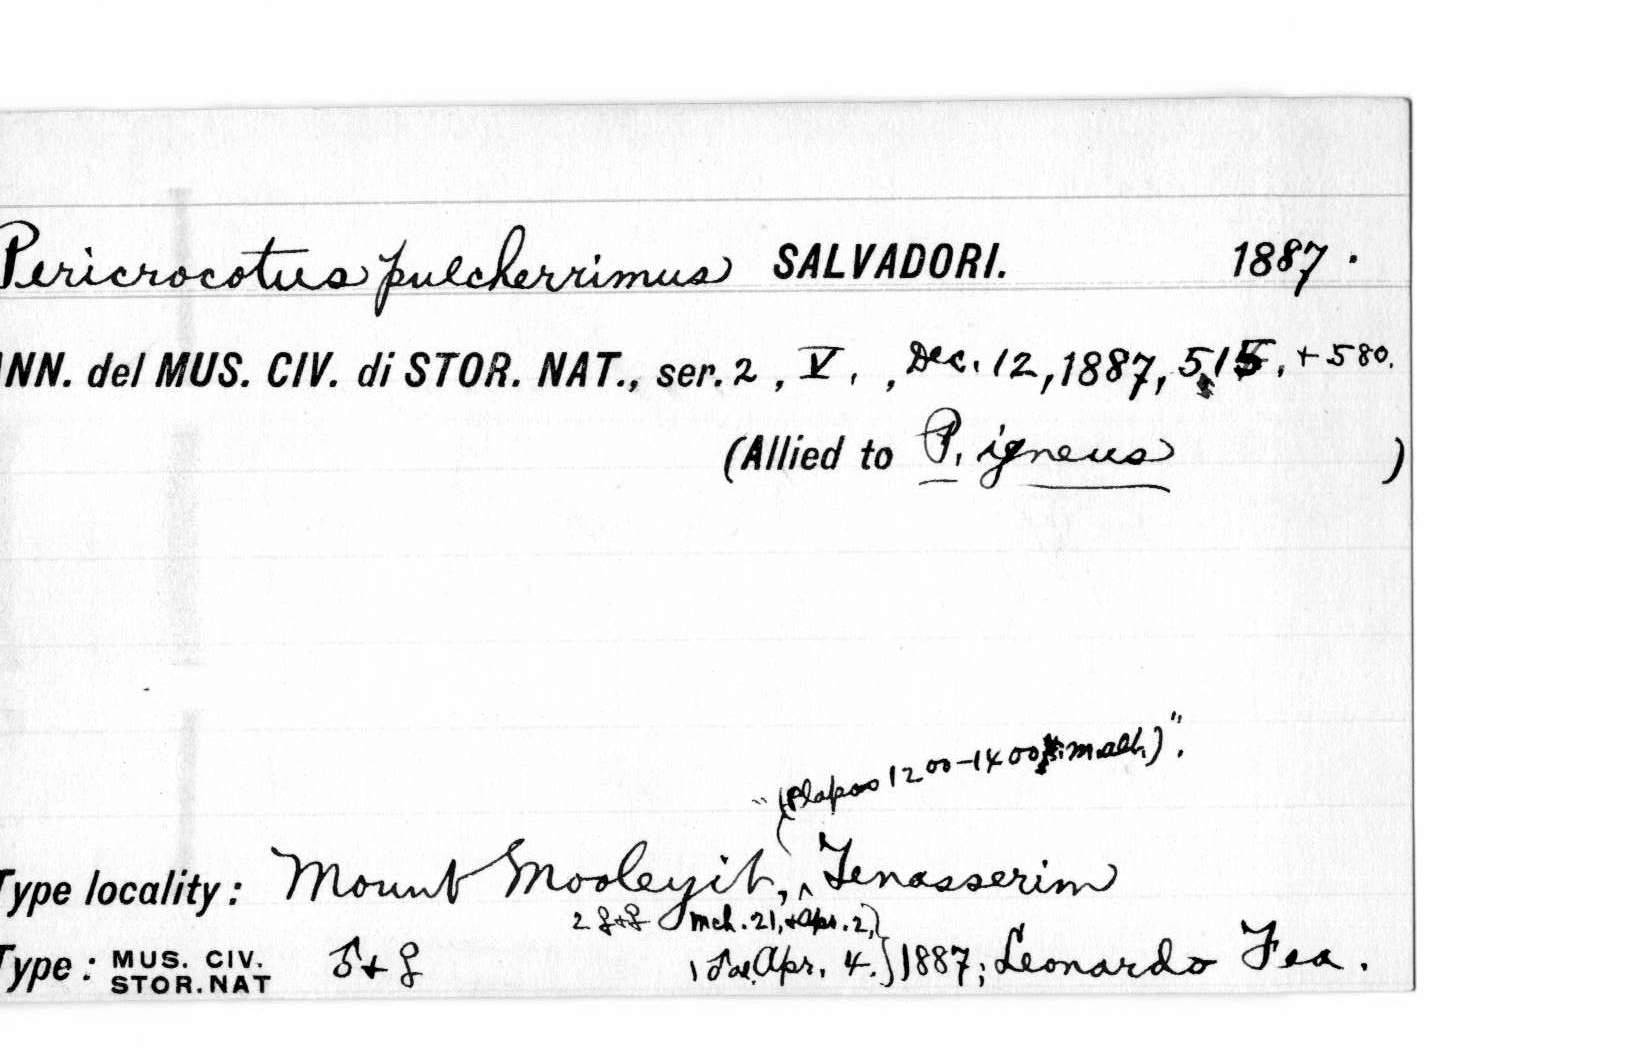 Pericrocotus pulcherrimus SALVADORI. 1887.
NN. del MUS. CIV. di STOR. NAT., ser. 2, V., Dec. 12, 1887, 515, + 580.
(Allied to P. igneus )
" (Plapoo 1200-1400 m. alt.)".
Type locality: Mount Mooleyit, ^ Tenasserim
2 ♀+♀ Mch. 21, + Apr. 2,}
Type: MUS. CIV. STOR. NAT ♂ + ♀ 1 ♂ ad. Apr. 4.} 1887; Leonardo Fea.